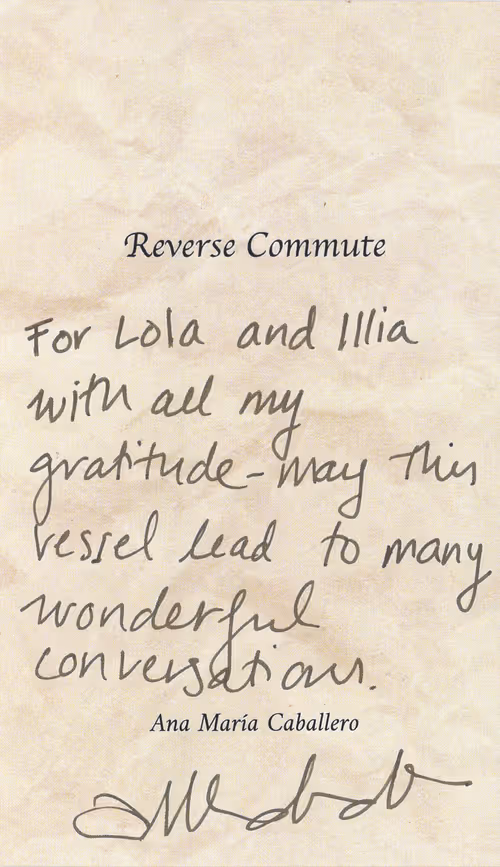 Reverse Commute
For Lola and Illia
with all my
gratitude - may this
vessel lead to many
wonderful
conversations.
Ana María Caballero